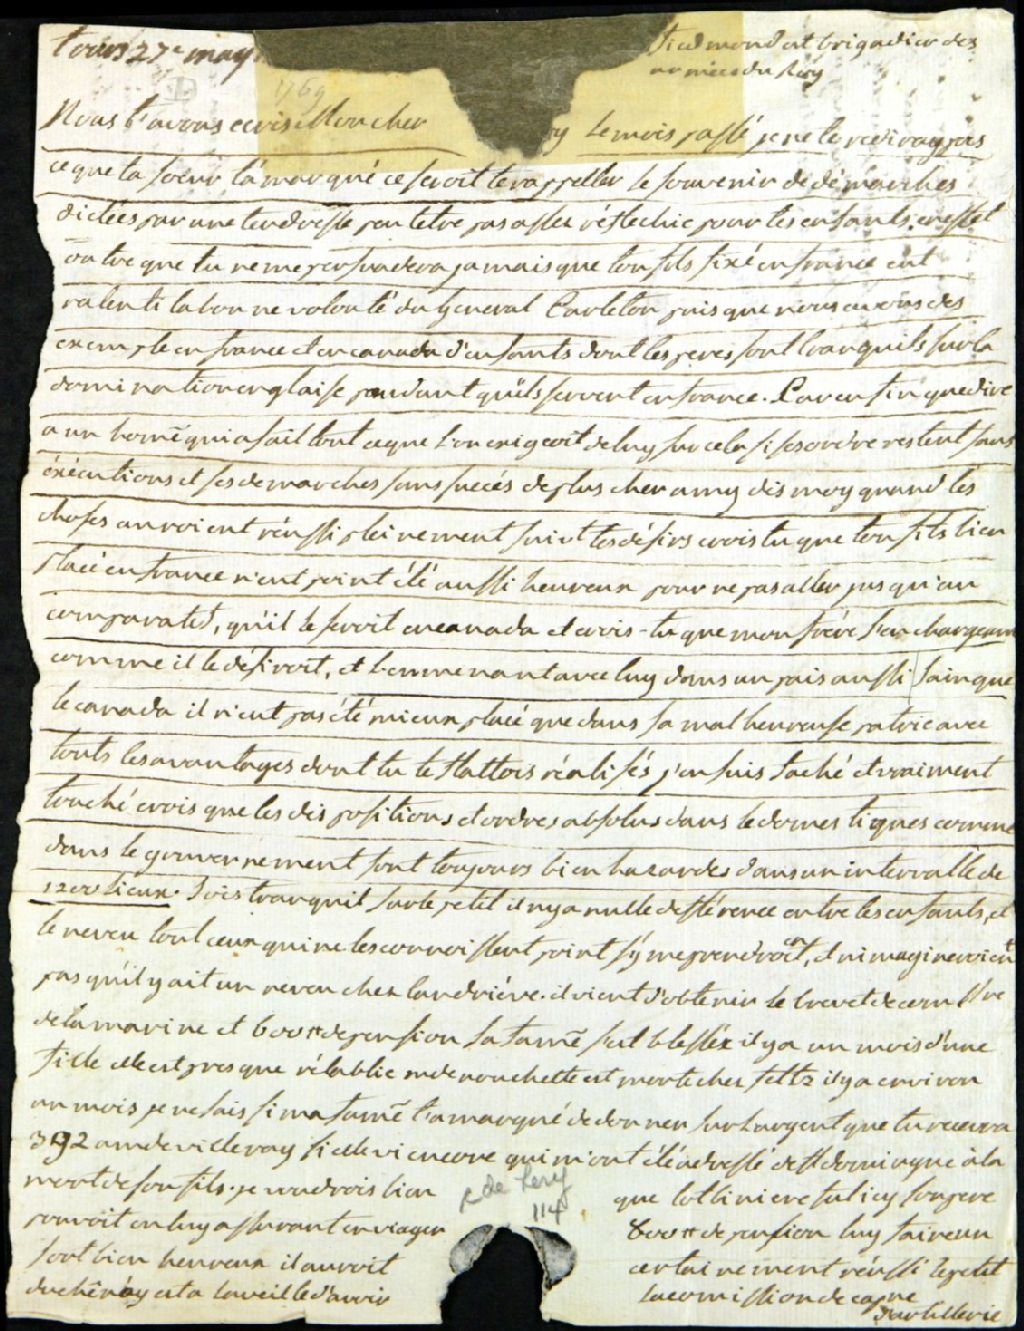 tours 27e may
1769
fredmond est brigadier des
armées du Roy
Nous t'avons ecris Mon cher ry le mois passé je ne te rediray pas
ce que ta soeur t'á marqué ce seroit te rappeller le souvenir de démarches
dictées par une tendresse peutetre pas assez réflechie pour tes enfants. en effet
outre que tu ne me persuadera jamais que ton fils fixé en france eut
ralenti la bonne volonté du general Carleton puis que nous avons des
exemple en france et en canada d'enfants dont les peres sont tranquils sur la
domination anglaise pendant qu'ils servent en france. Car enfin que dire
a un homē qui a fait tout ce que l'on exigeoit de luy sur cela si ses ordre restent sans
éxécutions et ses demarches sans succés de plus cher amy dis moy quand les
choses auroient réussi pleinement suivt tes désirs crois tu que ton fils bien
placé en france n'eut point été aussi heureux pour ne pas aller jusqu'au
comparatif, qu'il le seroit en canada et crois-tu que mon frére s'en chargeant
comme il le désiroit, et l'emmenant avec luy dans un païs aussi sain que
le canada il n'eut pas été mieux placé que dans sa malheureuse patrie avec
touts les avantages dont tu te flattois réalisés j'en suis faché et vraiment
touché crois que les dispositions et ordres absolus dans le domestiques comme
dans le gouvernement sont toujours bien hazardés dans un intervalle de
1200 lieux. Sois tranquil sur le petit il n'y a nulle defférence entre les enfants, et
le neveu tout ceux qui ne les connoissent point s'y meprendroient, et n'imagineroient
pas qu'il y ait un neveu chez landriéve. il vient d'obtenir le brevet de comssre
de la marine et 600tt de pension sa famē s'est blessée il y a un mois d'une
fille elle est presque rétablie mde nouchette est morte chez feltz il y a environ
un mois je ne sais si ma famē t'a marqué de donner sur l'argent que tu recevra
392 a mde villeray si elle vi encore qui m'ont été adressé de st domingue à la
mort de son fils. je voudrois bien que lotbiniere fut icy son pere
pouvoit en luy assurant en viager 800tt de pension luy faire un
sort bien heureux il auroit certainement réussi le petit
duchênay est a la veille d'avoir la comission de capne
d'artillerie
C de Lery
114